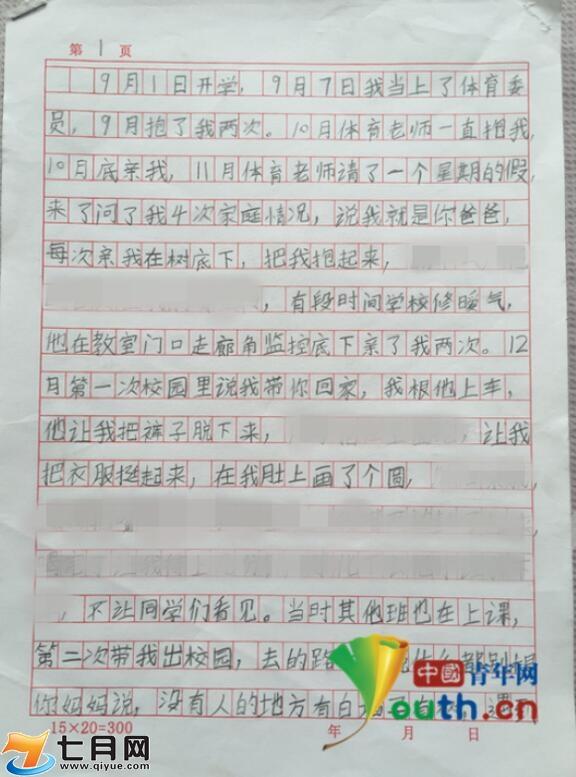 第 1 页
9月1日开学，9月7日我当上了体育委
员，9月抱了我两次。10月体育老师一直抱我，
10月底亲我，11月体育老师请了一个星期的假，
来了问了我4次家庭情况，说我就是你爸爸，
每次亲我在树底下，把我抱起来，
，有段时间学校修暖气，
他在教室门口走廊角监控底下亲了我两次。12
月第一次校园里说我带你回家，我根他上车，
他让我把裤子脱下来，让我
把衣服挺起来，在我肚上画了个圆，
，不让同学们看见。当时其他班也在上课，
第二次带我出校园，去的路
你妈妈说，没有人的地方有白
15×20=300 年 月 日
中國青年网
Youth.cn
七月网
www.qiyue.com